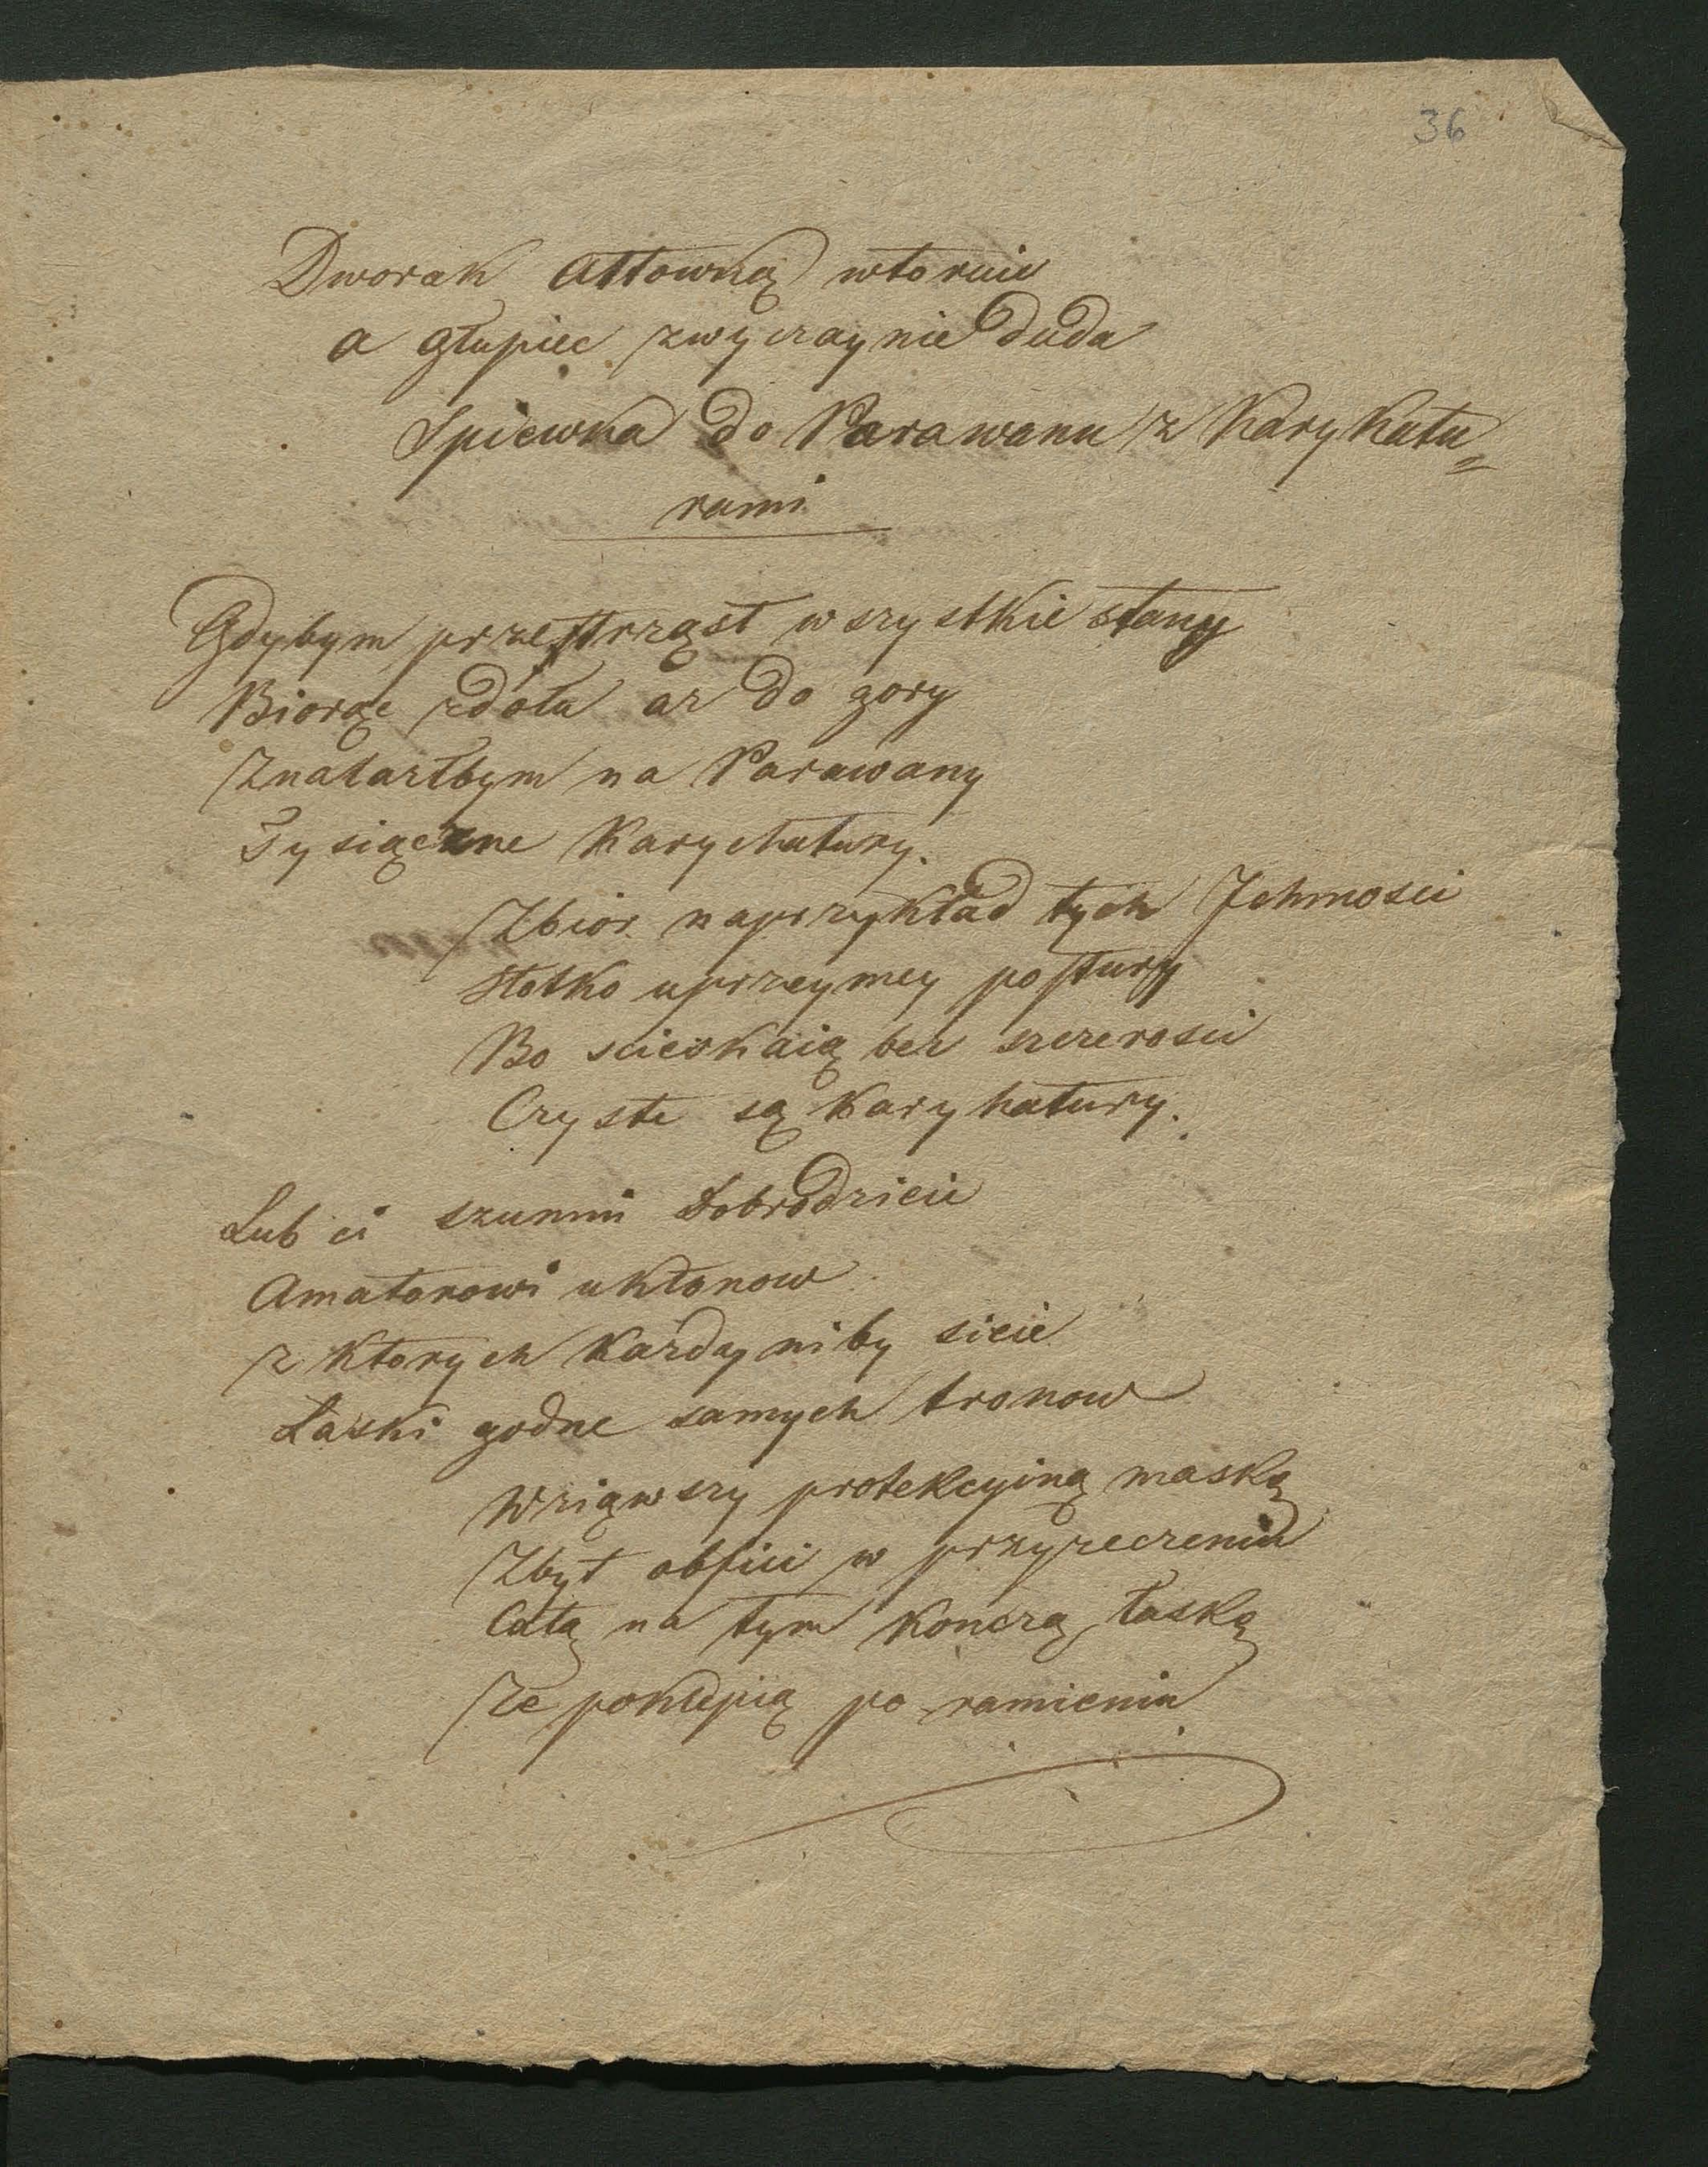 36
Dworak attowką wtoruie
a głupiec zwyczaynie duda
Spiewka do Parawanu z Karykatu=
rami
Gdybym przestrząsł wszystkie stany
Biorąc zdołu az do gory
Znalazłbym na Parawany
Tysiączne Karychatury.
Zbior naprzykład tych Jchmosci
słotko uprzeymey postury
Bo scieskaią bez szczerosci
Czyste są karykatury.
Lub ci szumni Dobrodzieie
Amatorowi ukłonow
z ktorych każdy niby sieie
Łaski godne samych tronow
Wziąwszy protekcyiną maskę
Zbyt obfici w przyrzeczeniu
Całą na tym konczą łaskę
Ze poklepią po ramieniu